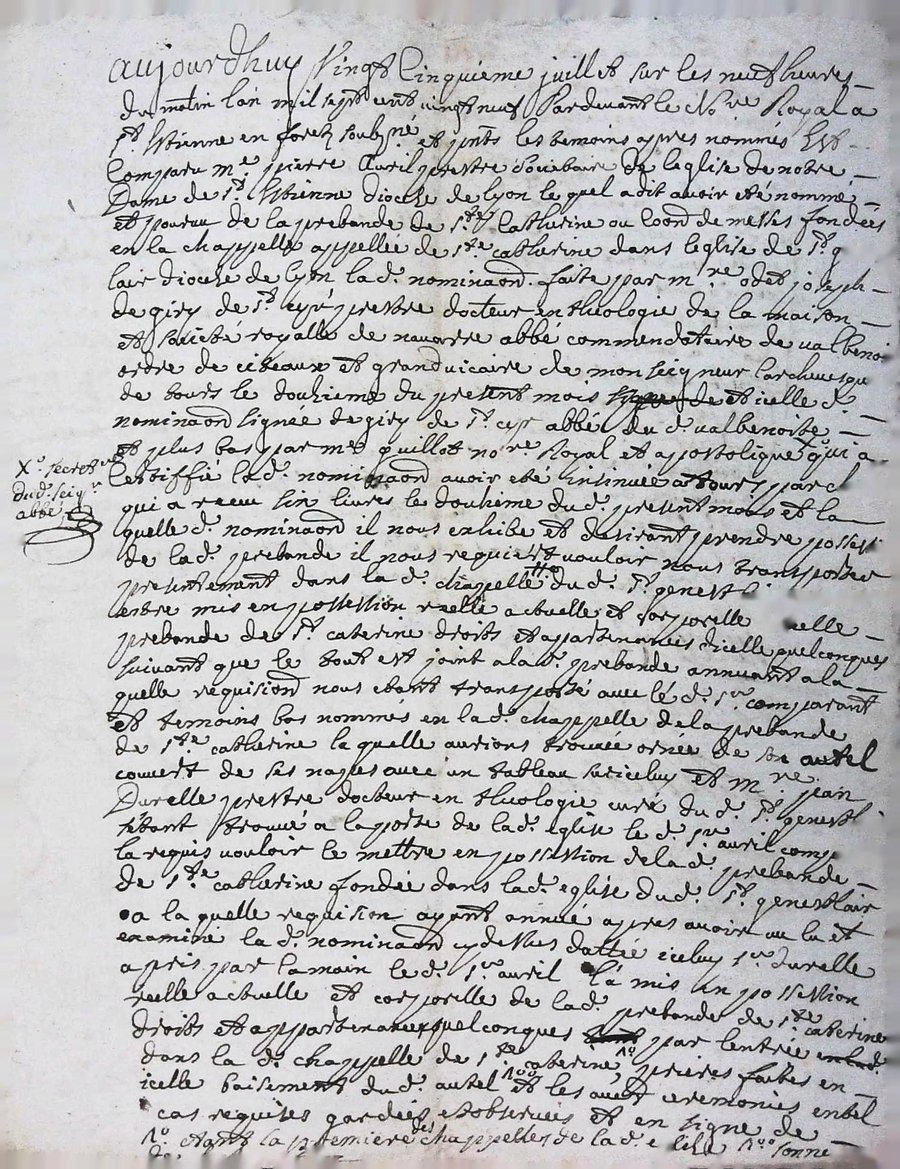 aujourdhuy Vingt Cinquieme juillet sur les neuf heures
du matin lan mil sept cent vingt neuf Pardevant le No.re Royal a
st. Etienne en forez soubsné et jints les temoins apres nommés Est
Comparu me. pierre Avril prestre societaire de leglise de notre
Dame de st. Etienne diocese de lyon lequel a dit avoir eté nommé
et pourvu de la prebande de ste. Catherine ou de messes fondées
en la chappelle appellée de ste. catherine dans leglise de st. g
lair diocese de lyon lad. nominaon. faite par mre. odet joseph
de giry de st. cyr prestre docteur en theologie de la maison
et societé royalle de navarre abbé commendataire de valbenoi
ordre de citeaux et grand vicaire de monseigneur larchevesqu
de tours le douzieme du present mois de et icelle d.
nominaon signée de giry de st. cyr abbé du d. valbenoite
et plus bas par me guillot nore. Royal et apostolique qui a
Certiffié la d. nominaon avoir eté Insinuée a tours par
Xo. secret re
dud. seigr
abbé
qui a receu six livres le douzieme du d. present mois et la
quelle d. nominaon il nous exhibe et desirant prendre possess
de la d. prebande il nous requiert vouloir nous transporter
presentement dans la d. chappelle du d. st. genest
estre mis en possession reelle actuelle et corporelle elle
prebande de st. caterine droits et appartenances dicelle quelconques
suivant que le tout est joint a la d. prebande annuant a la
quelle requision nous etant transporté avec le d. sr. comparant
et temoins bas nommés en la d. chappelle de la prebande
de ste. catherine la quelle aurions trouvée ornée de son autel
couvert de ses napes avec un tableau sur iceluy et mre. jean
Durelle prestre docteur en theologie curé du d. st. genest
setant trouvé a la porte de la d. eglise le d. sr. avril comp
la requis vouloir le mettre en possession de la d. prebande
de ste. catherine fondée dans la d. eglise du d. st. genestlair
a la quelle requision ayant annué apres avoir vu lu et
examiné la d. nominaon cy dessus dattée iceluy sr. durelle
a pris par la main le d. sr. avril la mis en possession
reelle actuelle et corporelle de la d. prebande de ste. caterine
droits et appartenances quelconques par lentrée
dans la d. chappelle de ste. caterine, 1o prieres faites en
icelle baisement du d. autel 1oo et les autres ceremonies en tel
cas requises gardées et observées et en signe de
1o. etant la premiere des chappelles de la d. 1oo sonne